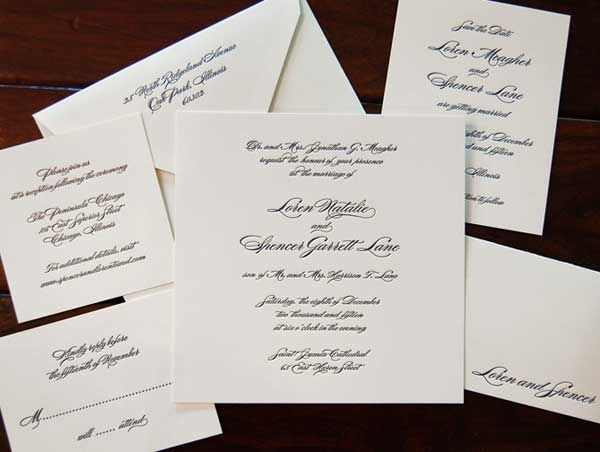 35 North Ridgeland Avenue
Oak Park, Illinois
60302
Save the Date
Loren Meagher
and
Spencer Lane
are getting married
eighth of December
and fifteen
Illinois
to follow
Please join us
at a reception following the ceremony
The Peninsula Chicago
Superior Street
Chicago, Illinois
For additional details, visit
Mrs. Jonathan G. Meagher
request the honour of your presence
at the marriage of
Loren Natalie
and
Spencer Garrett Lane
son of Mr. and Mrs. Harrison T. Lane
Saturday, the eighth of December
two thousand and fifteen
at six o'clock in the evening
Saint James Cathedral
65 East Huron Street
Kindly reply before
the fifteenth of November
M
will ..... attend
Loren and Spencer